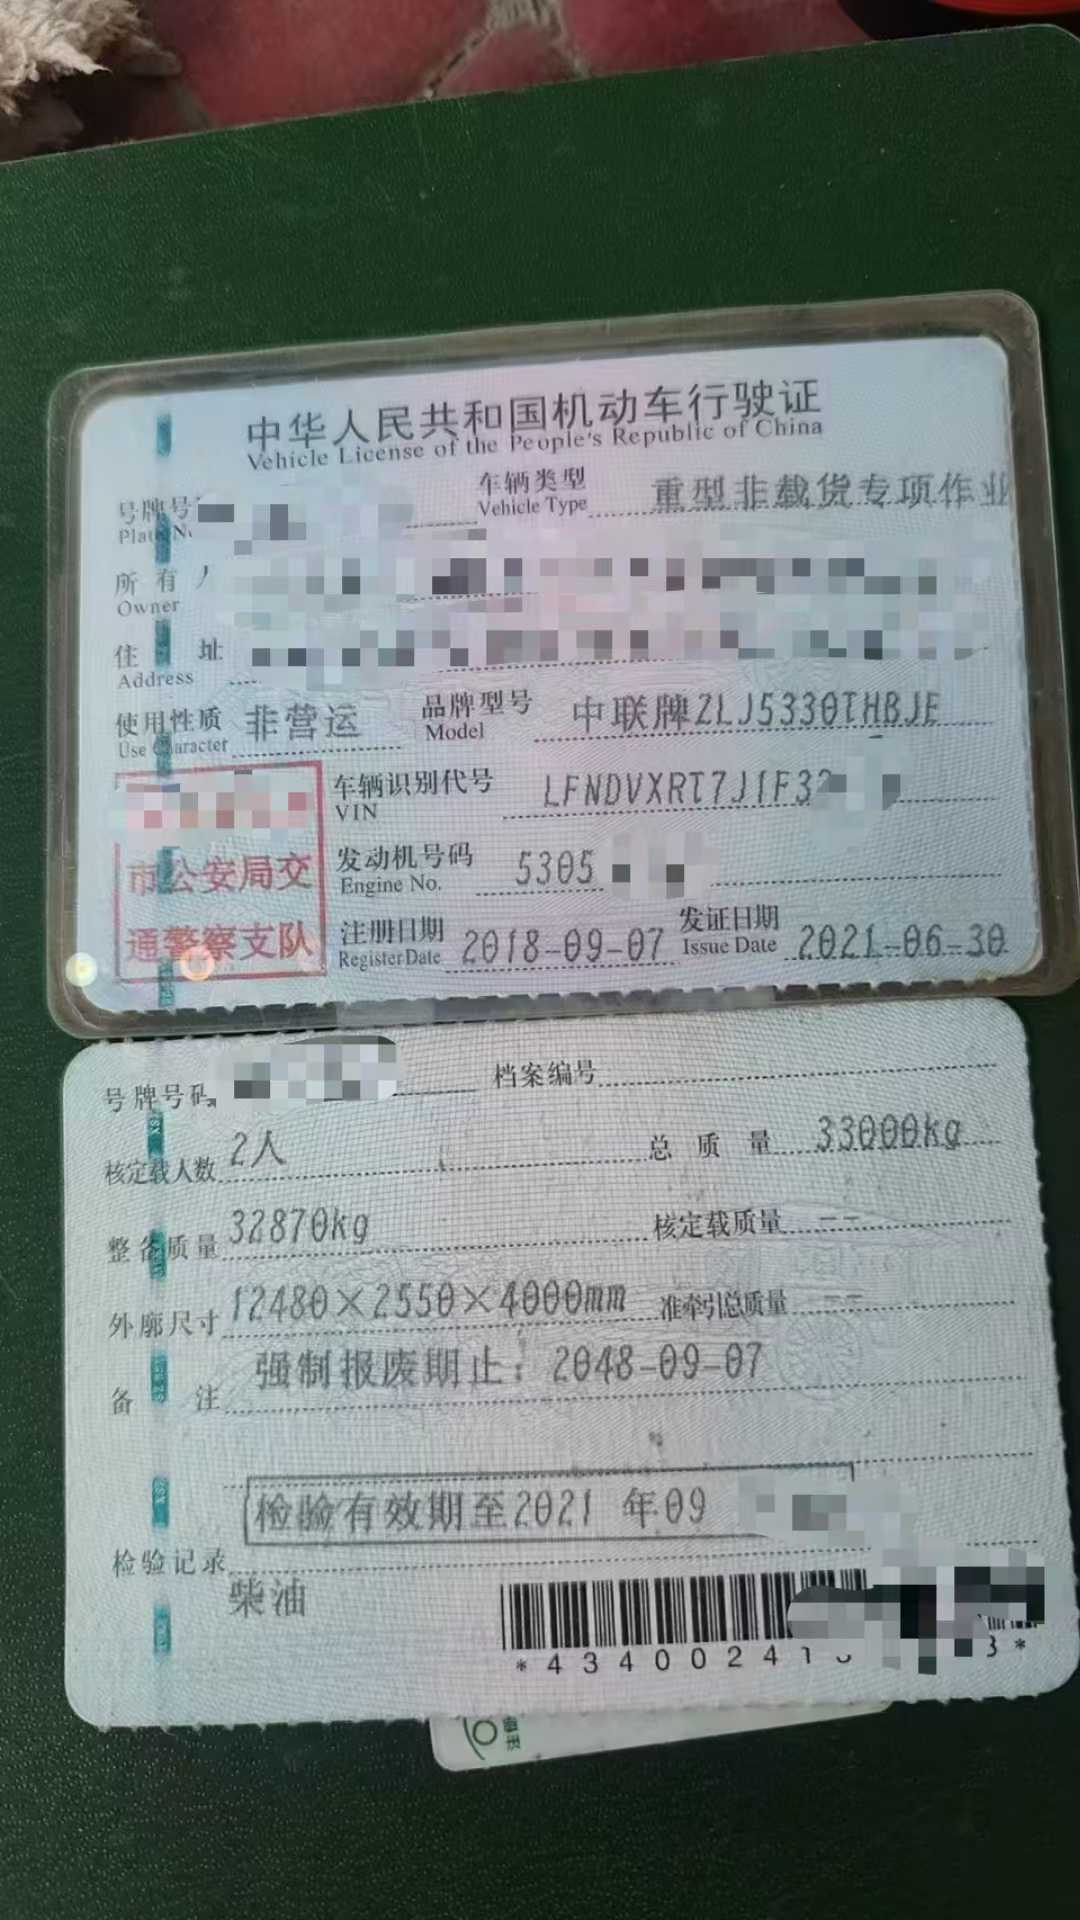 中华人民共和国机动车行驶证
Vehicle License of the People's Republic of China
号牌号
Plate No
车辆类型
Vehicle Type
重型非载货专项作业
所有人
Owner
住址
Address
使用性质 非营运
Use Character
品牌型号 中联牌ZLJ5330THBJE
Model
车辆识别代号 LFNDVXRT7J1F32
VIN
发动机号码 5305
Engine No.
市公安局交
通警察支队
注册日期 2018-09-07
Register Date
发证日期 2021-06-30
Issue Date
号牌号码
档案编号
核定载人数 2人
总质量 33000kg
整备质量 32870kg
核定载质量 --
外廓尺寸 12480×2550×4000mm
准牵引总质量 --
备注 强制报废期止：2048-09-07
检验有效期至2021 年09
检验记录
柴油
*43400241 3*